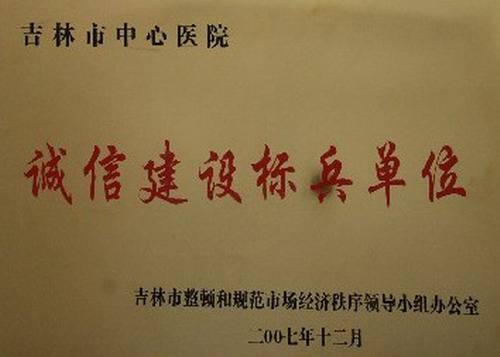 吉林市中心医院
诚信建设标兵单位
吉林市整顿和规范市场经济秩序领导小组办公室
二00七年十二月